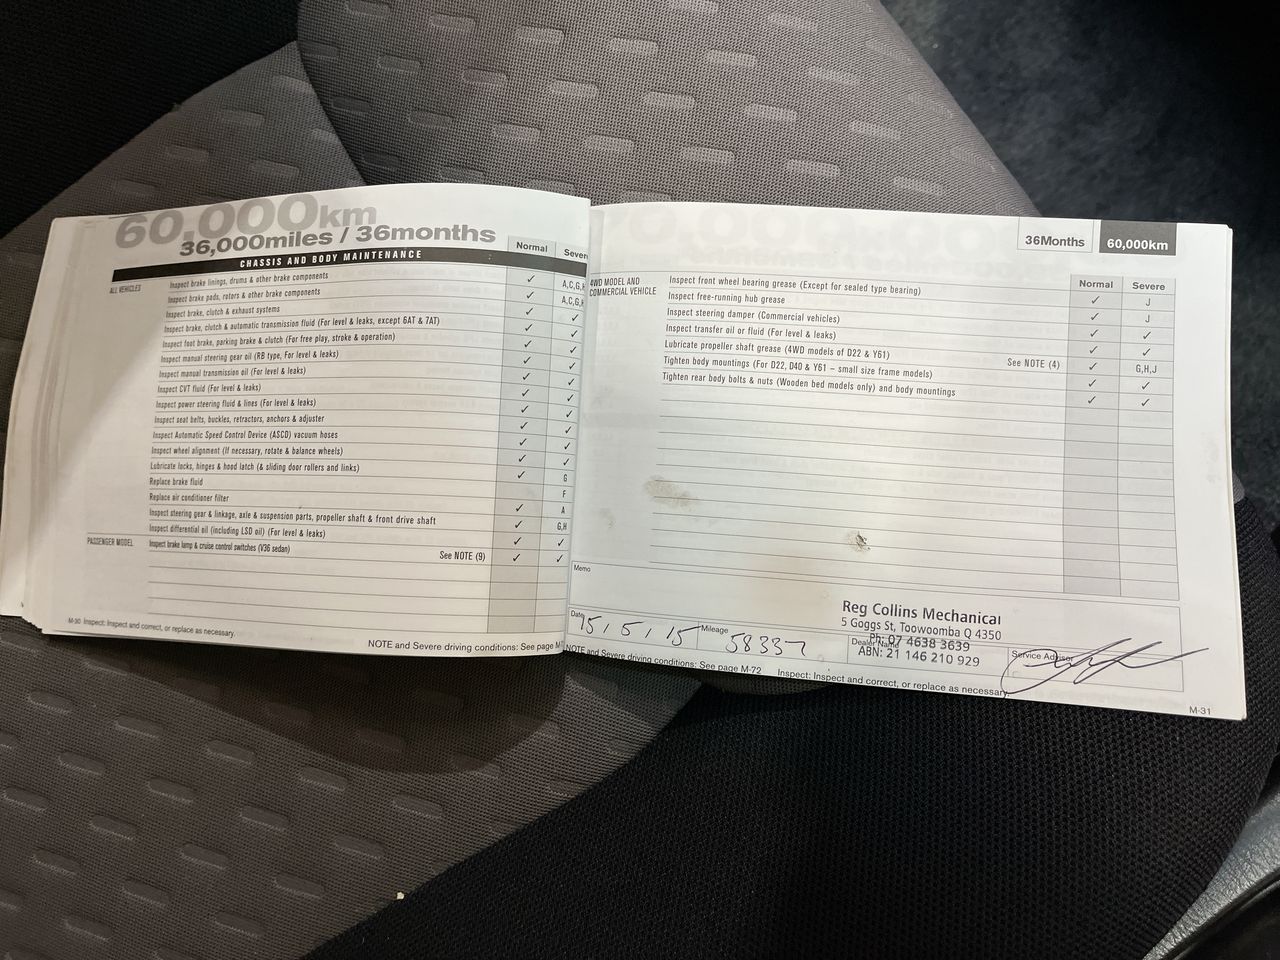 60,000km
36,000miles / 36months
CHASSIS AND BODY MAINTENANCE
Normal
Severe
ALL VEHICLES
Inspect brake linings, drums & other brake components ✓ A,C,G,H
Inspect brake pads, rotors & other brake components ✓ A,C,G,H
Inspect brake, clutch & exhaust systems ✓ ✓
Inspect brake, clutch & automatic transmission fluid (For level & leaks, except 6AT & 7AT) ✓ ✓
Inspect foot brake, parking brake & clutch (For free play, stroke & operation) ✓ ✓
Inspect manual steering gear oil (RB type, For level & leaks) ✓ ✓
Inspect manual transmission oil (For level & leaks) ✓ ✓
Inspect CVT fluid (For level & leaks) ✓ ✓
Inspect power steering fluid & lines (For level & leaks) ✓ ✓
Inspect seat belts, buckles, retractors, anchors & adjuster ✓ ✓
Inspect Automatic Speed Control Device (ASCD) vacuum hoses ✓ ✓
Inspect wheel alignment (If necessary, rotate & balance wheels) ✓ ✓
Lubricate locks, hinges & hood latch (& sliding door rollers and links) ✓ G
Replace brake fluid F
Replace air conditioner filter ✓ A
Inspect steering gear & linkage, axle & suspension parts, propeller shaft & front drive shaft ✓ G,H
Inspect differential oil (including LSD oil) (For level & leaks) ✓ ✓
PASSENGER MODEL
Inspect brake lamp & cruise control switches (V36 sedan) See NOTE (9) ✓ ✓
M-30 Inspect: Inspect and correct, or replace as necessary.
NOTE and Severe driving conditions: See page M-7
36Months 60,000km
Normal Severe
4WD MODEL AND
COMMERCIAL VEHICLE
Inspect front wheel bearing grease (Except for sealed type bearing) ✓ J
Inspect free-running hub grease ✓ J
Inspect steering damper (Commercial vehicles) ✓ ✓
Inspect transfer oil or fluid (For level & leaks) ✓ ✓
Lubricate propeller shaft grease (4WD models of D22 & Y61) See NOTE (4) ✓ G,H,J
Tighten body mountings (For D22, D40 & Y61 – small size frame models) ✓ ✓
Tighten rear body bolts & nuts (Wooden bed models only) and body mountings ✓ ✓
Memo
Reg Collins Mechanical
5 Goggs St, Toowoomba Q 4350
Ph: 07 4638 3639
ABN: 21 146 210 929
Date 15/5/15 Mileage 58337 Dealer Name Service Advisor
NOTE and Severe driving conditions: See page M-72 Inspect: Inspect and correct, or replace as necessary.
M-31